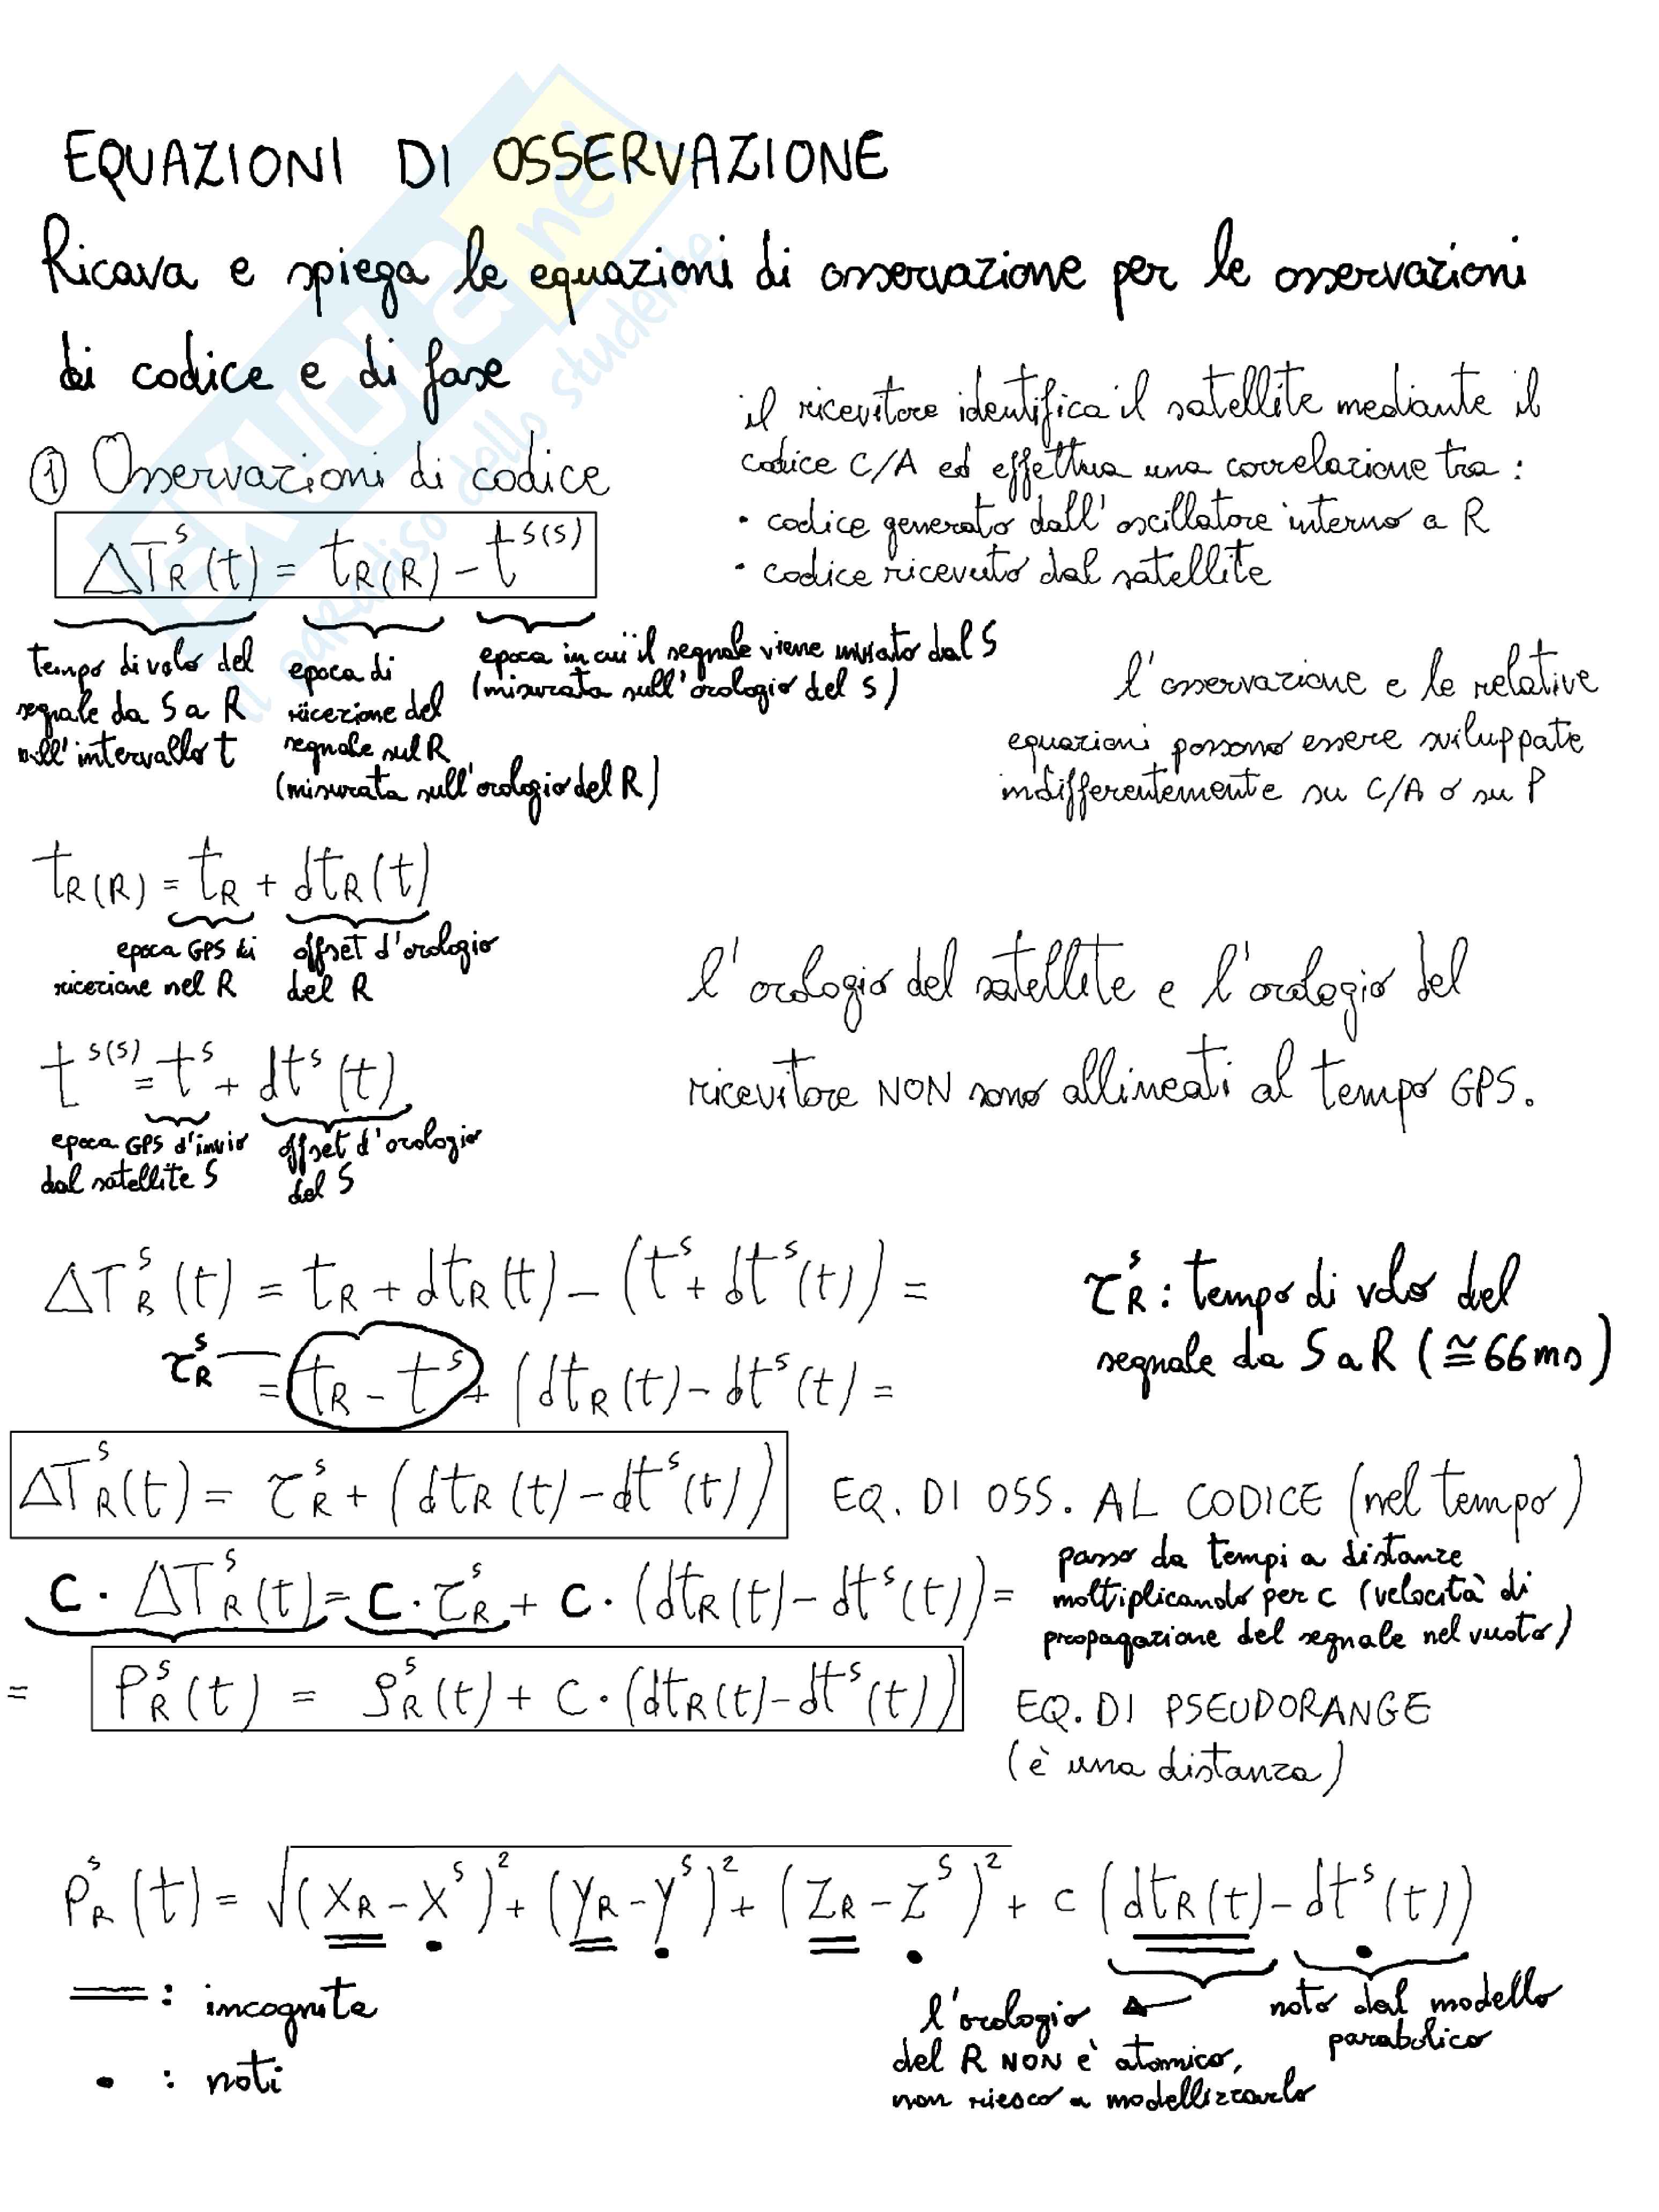 EQUAZIONI DI OSSERVAZIONE
Ricava e spiega le equazioni di osservazione per le osservazioni
di codice e di fase
① Osservazioni di codice
ΔT_R^S(t) = t_R(R) - t^S(S)
tempo di volo del
segnale da S a R
nell'intervallo t
epoca di
ricezione del
segnale sul R
(misurata sull'orologio del R)
epoca in cui il segnale viene inviato dal S
(misurata sull'orologio del S)
il ricevitore identifica il satellite mediante il
codice C/A ed effettua una correlazione tra:
• codice generato dall'oscillatore interno a R
• codice ricevuto dal satellite
l'osservazione e le relative
equazioni possono essere sviluppate
indifferentemente su C/A o su P
t_R(R) = t_R + dt_R(t)
epoca GPS di
ricezione nel R
offset d'orologio
del R
t^S(S) = t^S + dt^S(t)
epoca GPS d'invio
dal satellite S
offset d'orologio
del S
l'orologio del satellite e l'orologio del
ricevitore NON sono allineati al tempo GPS.
ΔT_R^S(t) = t_R + dt_R(t) - (t^S + dt^S(t)) =
τ_R^S
= t_R - t^S + (dt_R(t) - dt^S(t) =
τ_R^S : tempo di volo del
segnale da S a R (≅66ms)
ΔT_R^S(t) = τ_R^S + (dt_R(t) - dt^S(t)) EQ. DI OSS. AL CODICE (nel tempo)
c · ΔT_R^S(t) = c · τ_R^S + c · (dt_R(t) - dt^S(t)) =
passo da tempi a distanze
moltiplicando per c (velocità di
propagazione del segnale nel vuoto)
= P_R^S(t) = ρ_R^S(t) + c · (dt_R(t) - dt^S(t)) EQ. DI PSEUDORANGE
(è una distanza)
P_R^S(t) = √((X_R - X^S)² + (Y_R - Y^S)² + (Z_R - Z^S)²) + c (dt_R(t) - dt^S(t))
═ : incognite
• : noti
l'orologio
del R NON è atomico,
non riesco a modellizzarlo
noto dal modello
parabolico
SKUOLA.net
il paradiso dello studente